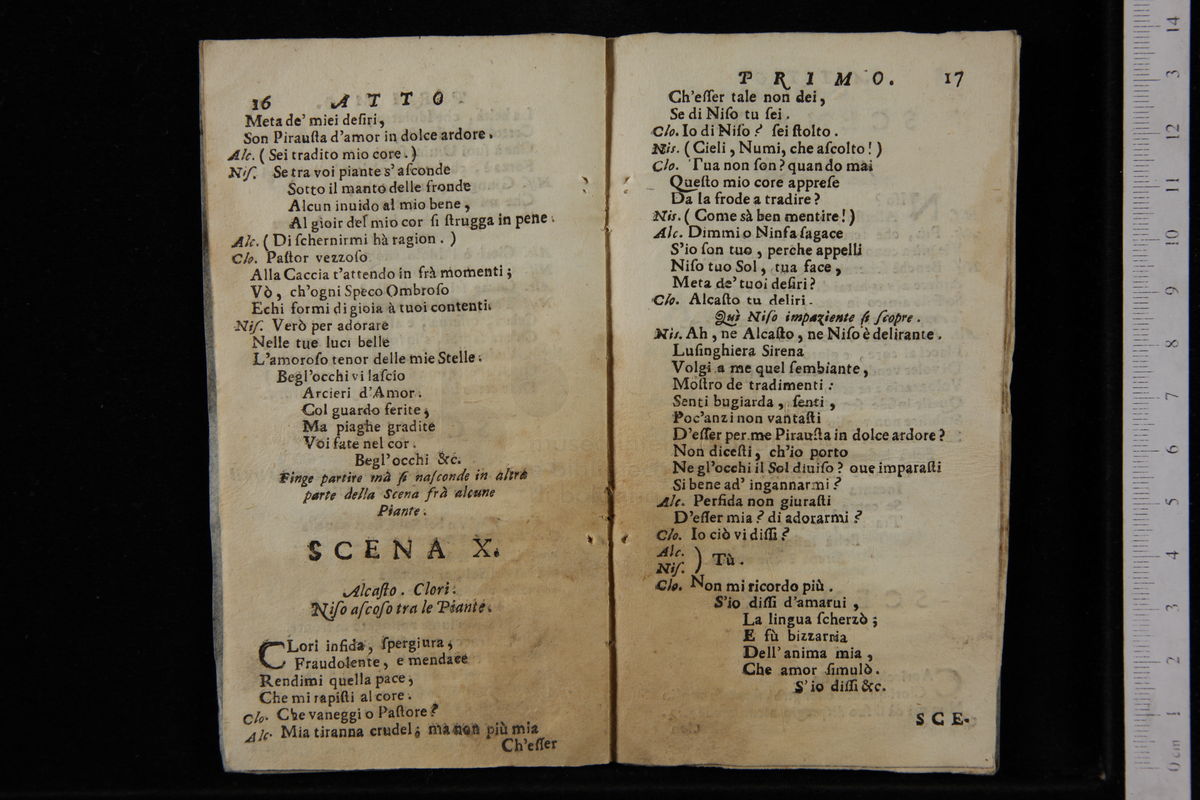 16 ATTO
Meta de' miei desiri,
Son Pirausta d'amor in dolce ardore.
Alc. (Sei tradito mio core.)
Niſ. Se tra voi piante s'aſconde
Sotto il manto delle fronde
Alcun inuido al mio bene,
Al gioir del mio cor ſi ſtrugga in pene.
Alc. (Di ſchernirmi hà ragion.)
Clo. Paſtor vezzoſo
Alla Caccia t'attendo in frà momenti;
Vò, ch'ogni Speco Ombroſo
Echi formi di gioia à tuoi contenti.
Niſ. Verò per adorare
Nelle tue luci belle
L'amoroſo tenor delle mie Stelle.
Begl'occhi vi laſcio
Arcieri d'Amor.
Col guardo ferite,
Ma piaghe gradite
Voi fate nel cor.
Begl'occhi &c.
Finge partire mà ſi naſconde in altra
parte della Scena frà alcune
Piante.
SCENA X.
Alcaſto. Clori.
Niſo aſcoſo tra le Piante.
CLori infida, ſpergiura,
Fraudolente, e mendace
Rendimi quella pace,
Che mi rapiſti al core.
Clo. Che vaneggi o Paſtore?
Alc. Mia tiranna crudel; ma non più mia
Ch'eſſer
PRIMO. 17
Ch'eſſer tale non dei,
Se di Niſo tu ſei.
Clo. Io di Niſo? ſei ſtolto.
Nis. (Cieli, Numi, che aſcolto!)
Clo. Tua non ſon? quando mai
Queſto mio core appreſe
Da la frode a tradire?
Nis. (Come sà ben mentire!)
Alc. Dimmi o Ninfa ſagace
S'io ſon tuo, perche appelli
Niſo tuo Sol, tua face,
Meta de' tuoi deſiri?
Clo. Alcaſto tu deliri.
Quì Niſo impaziente ſi ſcopre.
Nis. Ah, ne Alcaſto, ne Niſo è delirante.
Luſinghiera Sirena
Volgi a me quel ſembiante,
Moſtro de tradimenti:
Senti bugiarda, ſenti,
Poc'anzi non vantaſti
D'eſſer per me Pirauſta in dolce ardore?
Non diceſti, ch'io porto
Ne gl'occhi il Sol diuiſo? oue imparaſti
Si bene ad' ingannarmi?
Alc. Perfida non giuraſti
D'eſſer mia? di adorarmi?
Clo. Io ciò vi diſſi?
Alc.
Niſ. ) Tù.
Clo. Non mi ricordo più.
S'io diſſi d'amarui,
La lingua ſcherzò;
E fù bizzarria
Dell'anima mia,
Che amor ſimulò.
S'io diſſi &c.
SCE-
0 cm 1 2 3 4 5 6 7 8 9 10 11 12 3 14